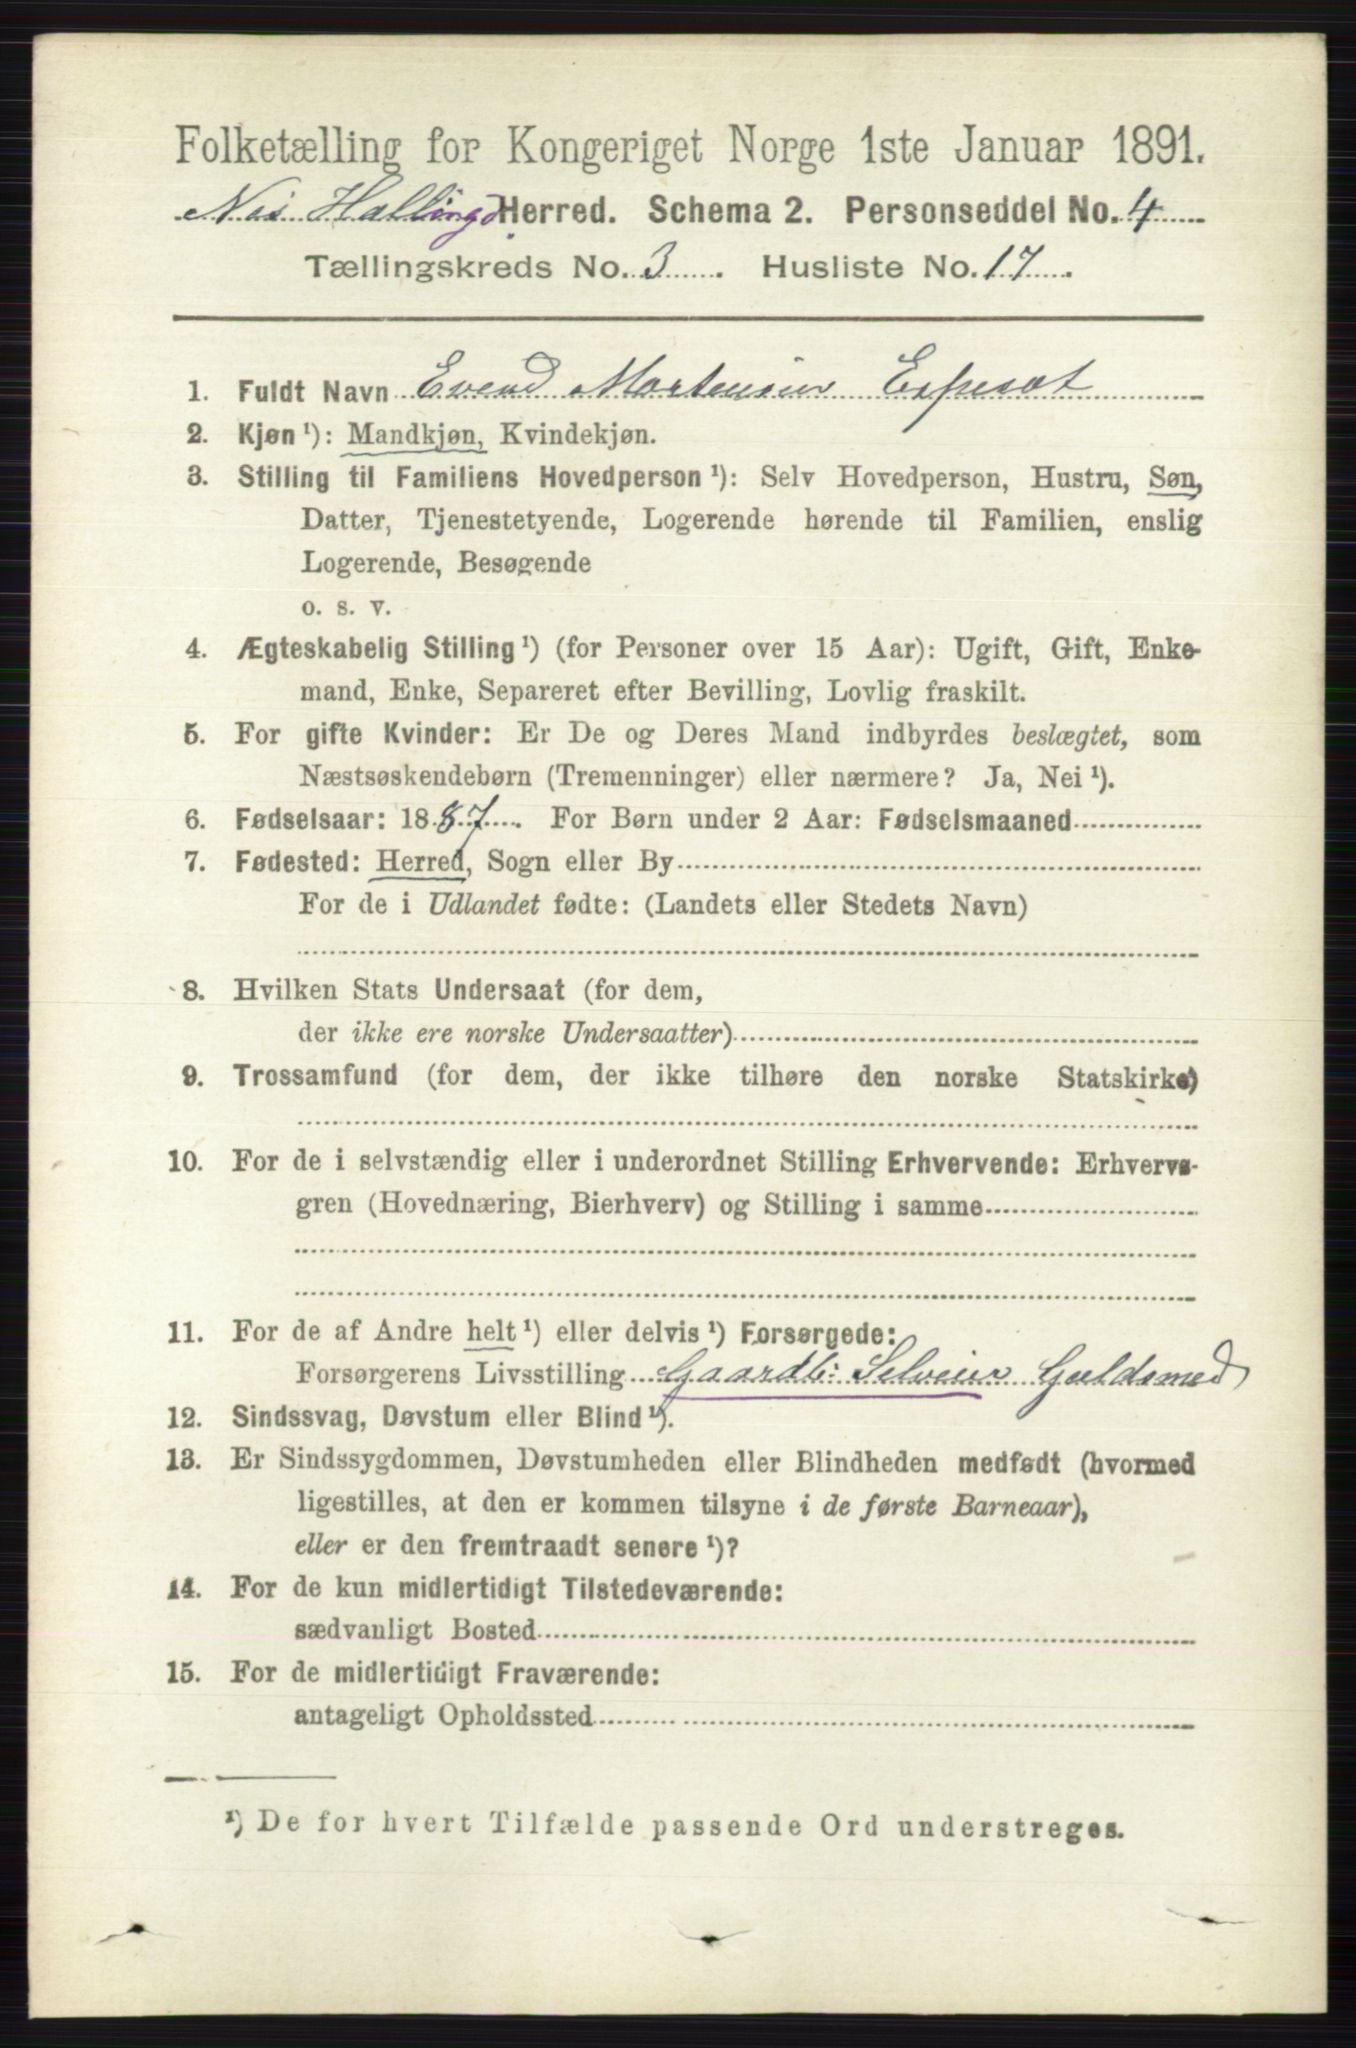 Folketælling for Kongeriget Norge 1ste Januar 1891.
Nes Hallingd Herred. Schema 2. Personseddel No. 4
Tællingskreds No. 3. Husliste No. 17.
1. Fuldt Navn Evend Mortensen Espesæt
2. Kjøn ¹): Mandkjøn, Kvindekjøn.
3. Stilling til Familiens Hovedperson ¹): Selv Hovedperson, Hustru, Søn,
Datter, Tjenestetyende, Logerende hørende til Familien, enslig
Logerende, Besøgende
o. s. v.
4. Ægteskabelig Stilling ¹) (for Personer over 15 Aar): Ugift, Gift, Enke-
mand, Enke, Separeret efter Bevilling, Lovlig fraskilt.
5. For gifte Kvinder: Er De og Deres Mand indbyrdes beslægtet, som
Næstsøskendebørn (Tremenninger) eller nærmere? Ja, Nei ¹).
6. Fødselsaar: 1887. For Børn under 2 Aar: Fødselsmaaned
7. Fødested: Herred, Sogn eller By
For de i Udlandet fødte: (Landets eller Stedets Navn)
8. Hvilken Stats Undersaat (for dem,
der ikke ere norske Undersaatter)
9. Trossamfund (for dem, der ikke tilhøre den norske Statskirke)
10. For de i selvstændig eller i underordnet Stilling Erhvervende: Erhvervs-
gren (Hovednæring, Bierhverv) og Stilling i samme
11. For de af Andre helt ¹) eller delvis ¹) Forsørgede:
Forsørgerens Livsstilling Gaardb: Selveier Guldsmed
12. Sindssvag, Døvstum eller Blind ¹).
13. Er Sindssygdommen, Døvstumheden eller Blindheden medfødt (hvormed
ligestilles, at den er kommen tilsyne i de første Barneaar),
eller er den fremtraadt senere ¹)?
14. For de kun midlertidigt Tilstedeværende:
sædvanligt Bosted
15. For de midlertidigt Fraværende:
antageligt Opholdssted
¹) De for hvert Tilfælde passende Ord understreges.